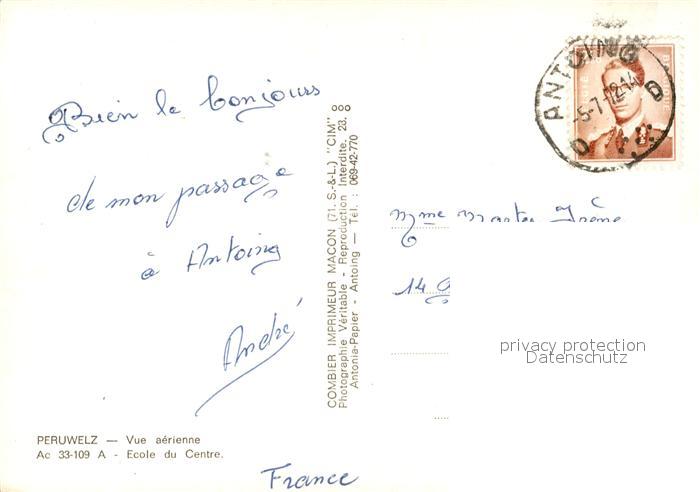 Bien le bonjours
de mon passage
à Antoing
André
PERUWELZ — Vue aérienne
Ac 33-109 A - Ecole du Centre.
France
COMBIER IMPRIMEUR MACON (71. S.-&-L.) "CIM"
Photographie Véritable - Reproduction Interdite. 23.
Antonia-Papier - Antoing — Tél. : 069-42-770
ANTOING
-5-7-12-14
D D
Mme Martes Irène
14
privacy protection
Datenschutz